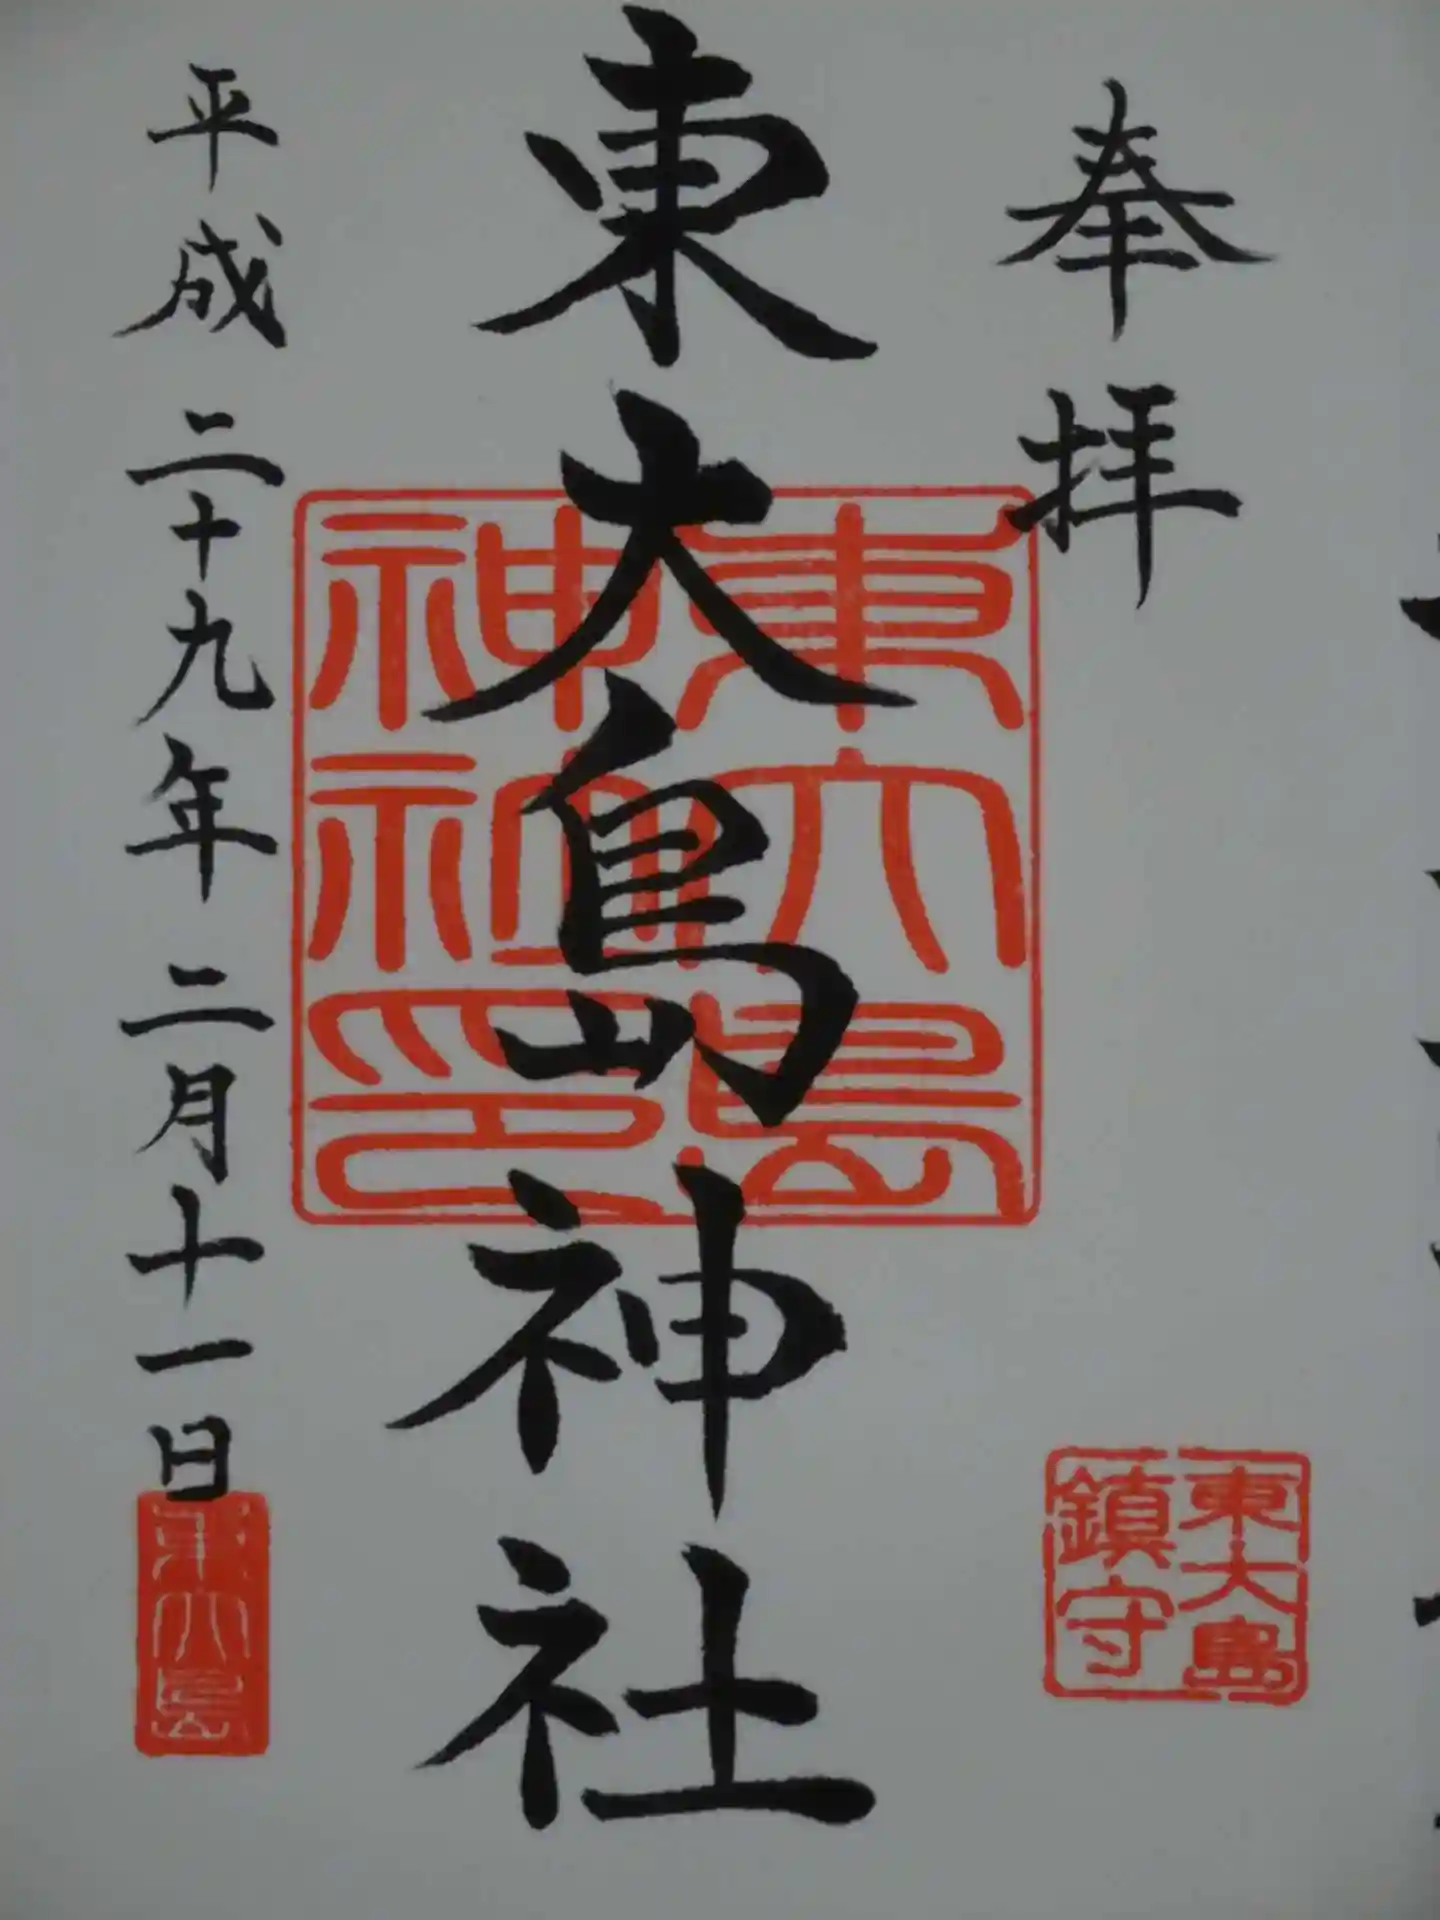 奉拝
東大島神社
平成二十九年二月十一日
東大島
神社印
東大島
鎮守
東大島